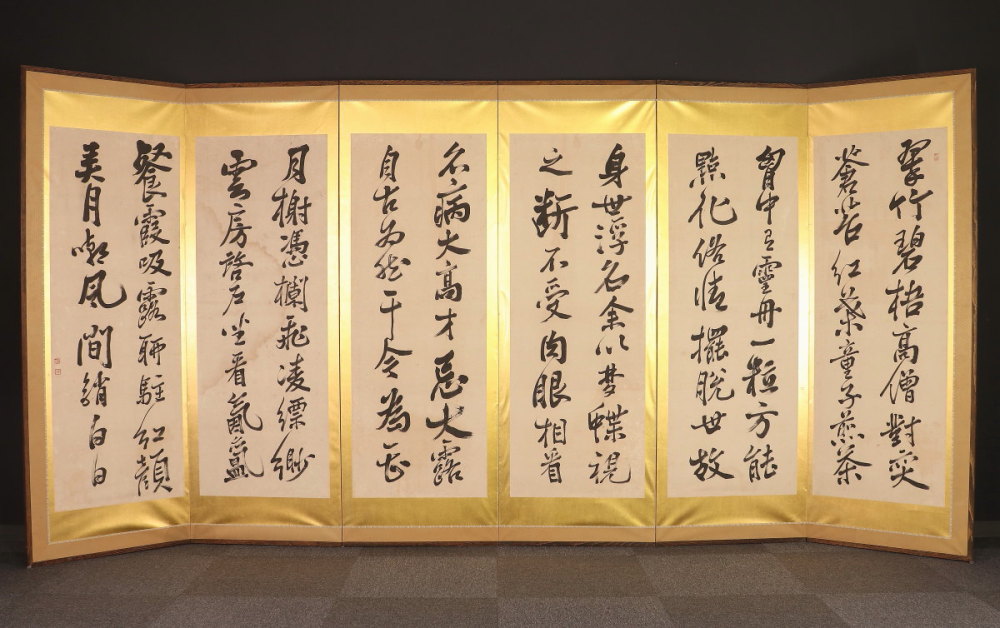 翠竹碧梧高僧對奕
蒼苔紅葉童子煎茶
胷中有靈丹一粒方能
點化俗情擺脫世故
身世浮名余以梦蝶視
之斷不受肉眼相看
名病太高才忌太露
自古為然于今為甚
月榭憑欄飛凌縹緲
雲房啓戶坐看氤氳
餐霞吸露聊駐紅顏
弄月嘲風閒銷白日